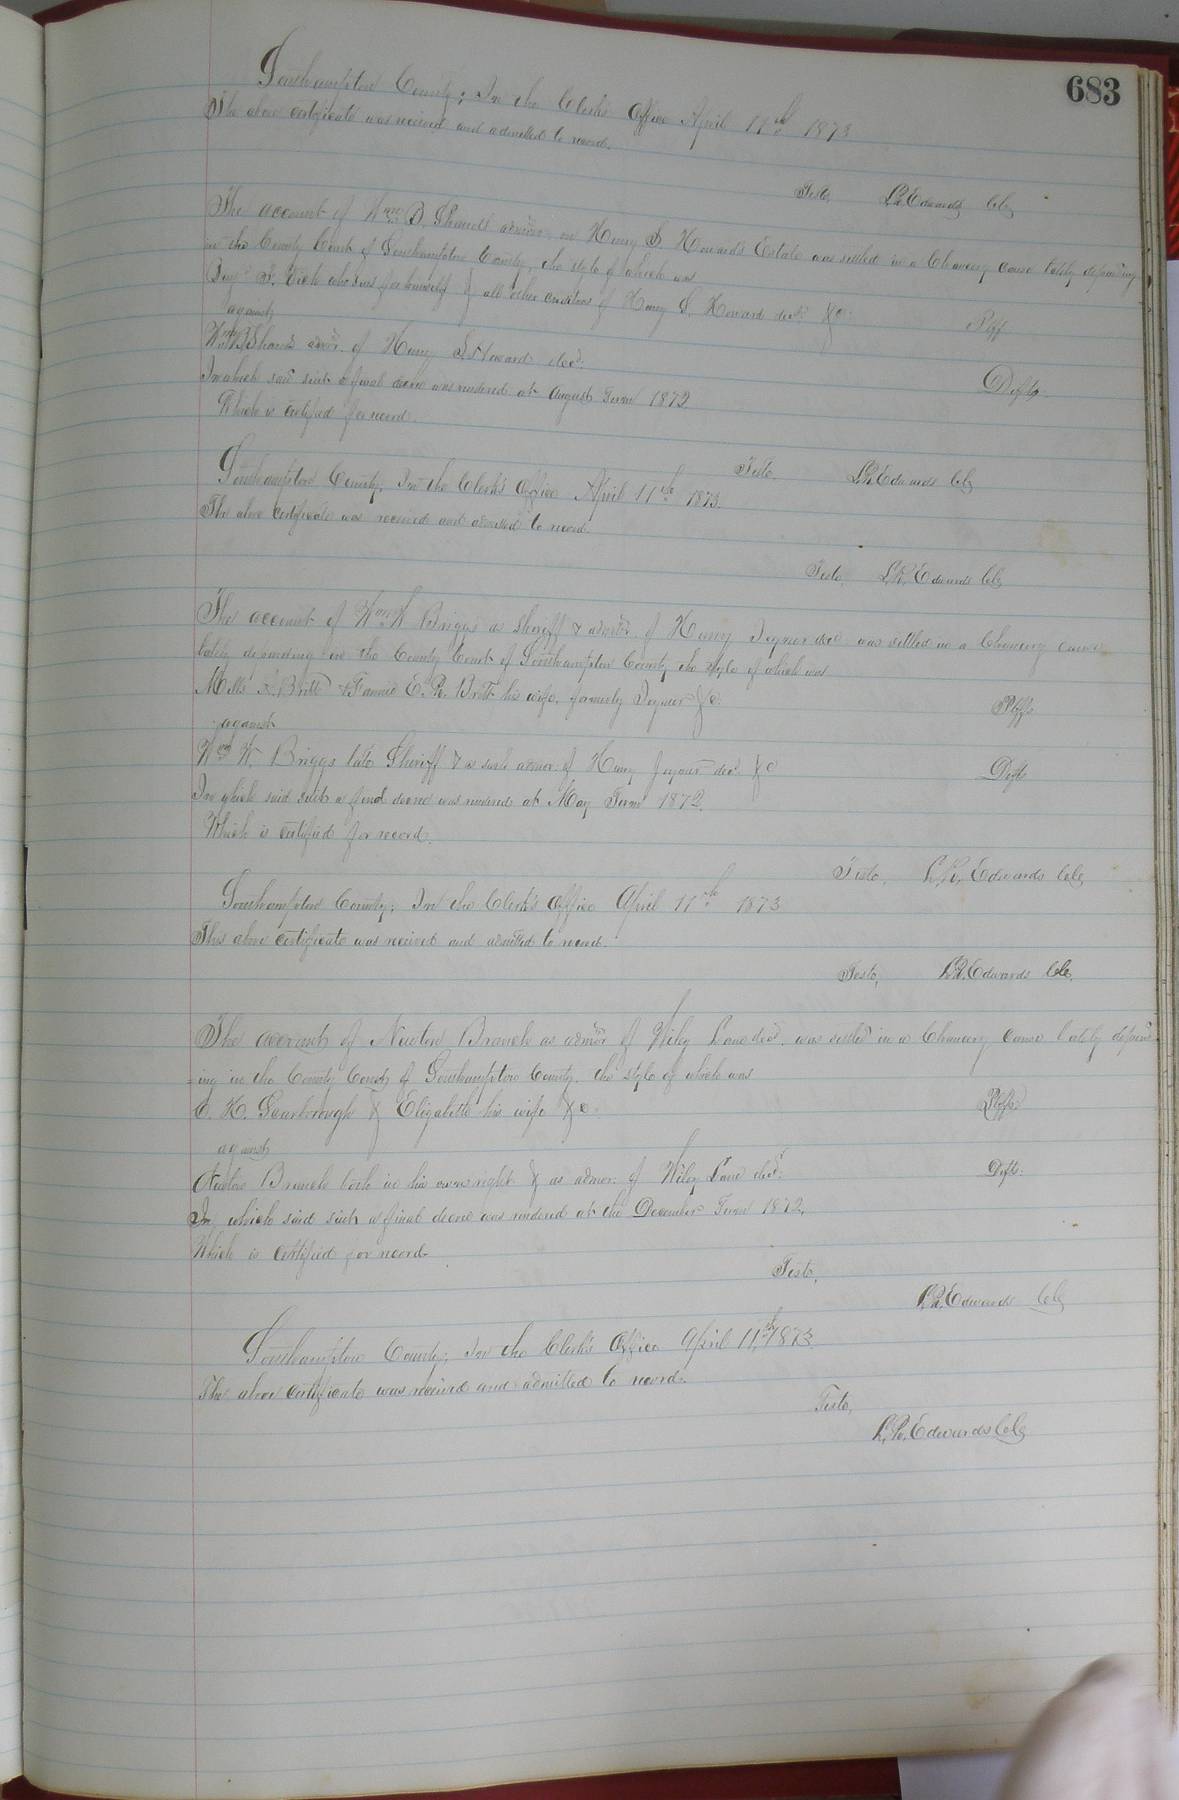 683
Southampton County; In the Clerk's Office April 11th 1873
The above certificate was received and admitted to record.
Teste, L.R. Edwards Clk
The account of Wm B. Shands admor on Henry S. Howard's Estate was settled in a Chancery cause lately depending
in the County Court of Southampton County, the style of which was
Benj. F. who sues for himself & all other creditors of Henry S. Howard decd. &c. Plff
against
Wm B. Shands admr. of Henry S. Howard decd. Defts
In which said suit a final decree was rendered at August Term 1872
Which is certified for record.
Teste. L.R. Edwards Clk
Southampton County, In the Clerk's Office April 11th 1873.
The above certificate was received and admitted to record.
Teste, L.R. Edwards Clk
The account of Wm W Briggs as Sheriff & admor of Henry Joyner decd was settled in a Chancery cause
lately depending in the County Court of Southampton County the style of which was
Mills A. Britt & Fannie E. R. Britt his wife, formerly Joyner &c. Plffs
against
Wm W. Briggs late Sheriff & as such admor. of Henry Joyner decd. &c Defts
In which said suit a final decree was rendered at May Term 1872.
Which is certified for record.
Teste, L.R. Edwards Clk
Southampton County; In the Clerk's Office April 11th 1873
This above certificate was received and admitted to record.
Teste, L.R. Edwards Clk.
The account of Newton Branch as admor of Wiley Lane decd. was settled in a Chancery cause lately depend-
=ing in the County Court of Southampton County. the style of which was
E. H. Scarborough & Elizabeth his wife &c. Plffs
against
Newton Branch both in his own right & as admor. of Wiley Lane decd. Deft.
In which said suit a final decree was rendered at the December Term 1872,
Which is certified for record
Teste,
L.R. Edwards Clk
Southampton County, In the Clerk's Office April 11th, 1873.
The above certificate was received and admitted to record.
Teste,
L.R. Edwards Clk